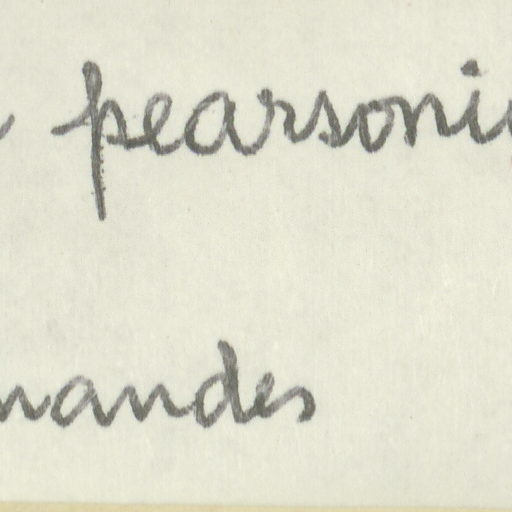 pearsoni
nandes